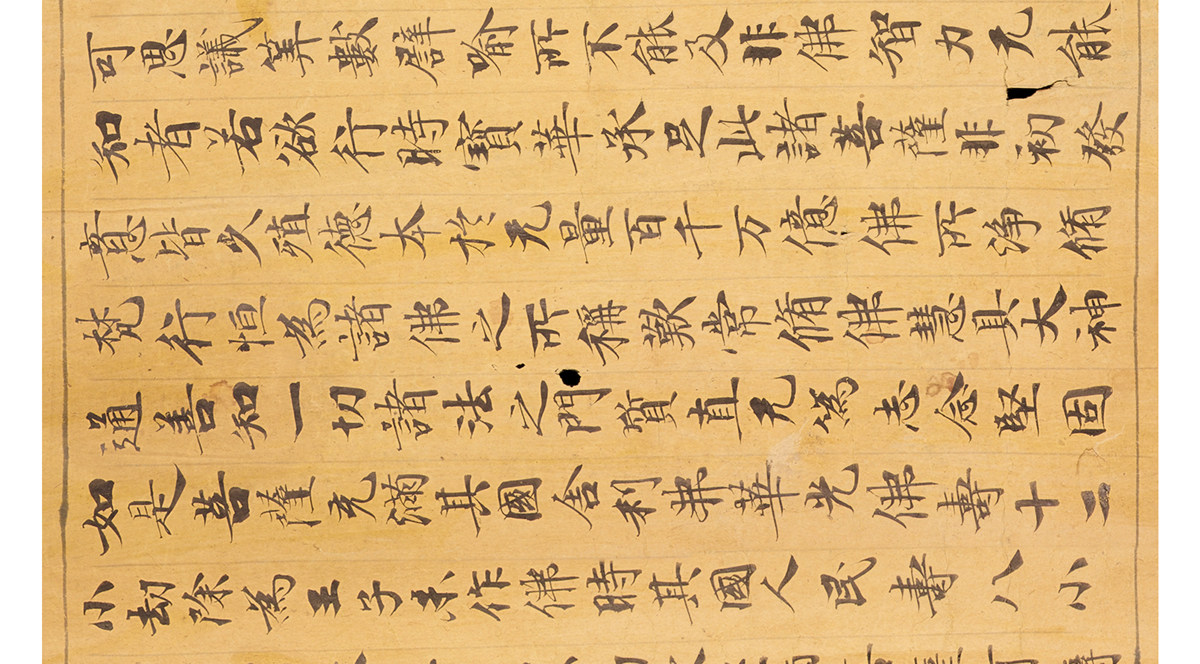 可思議算數譬喻所不能及非佛智力无能
知者若欲行時寶華承足此諸菩薩非初發
意皆久殖德本於无量百千万億佛所淨脩
梵行恒為諸佛之所稱歎常脩佛慧具大神
通善知一切諸法之門質直无偽志念堅固
如是菩薩充滿其國舍利弗華光佛壽十二
小劫除為王子未作佛時其國人民壽八小